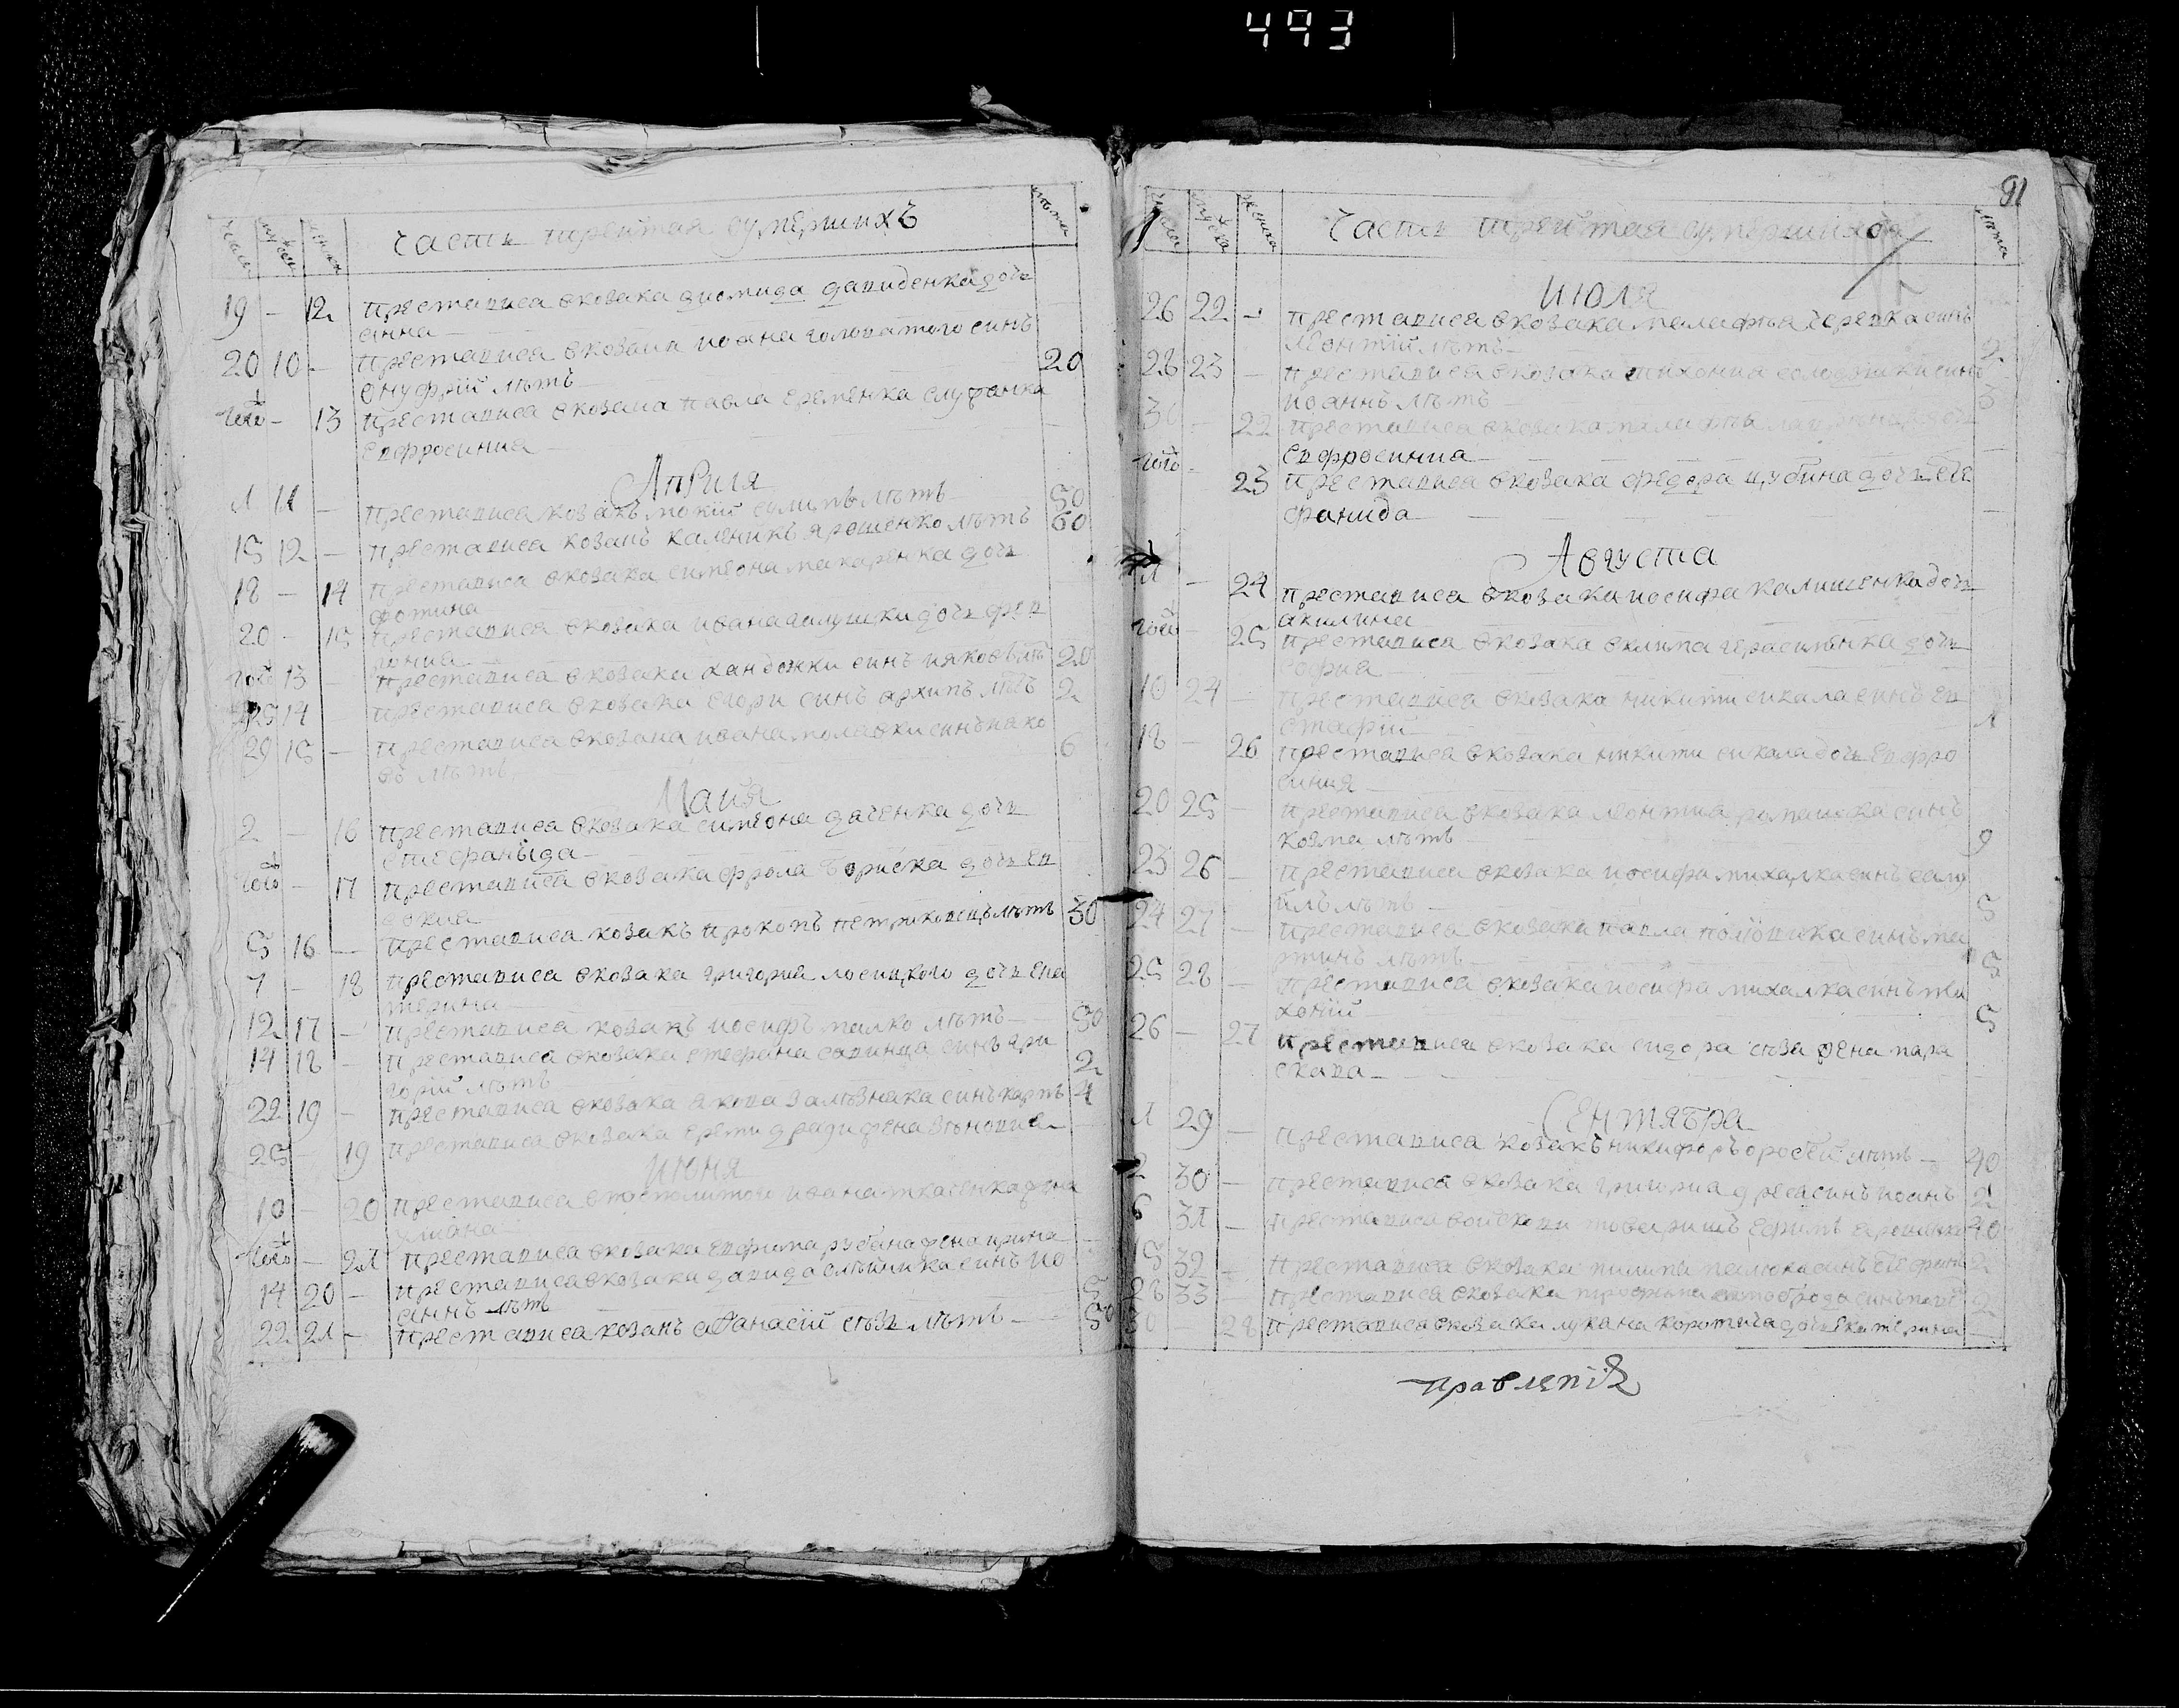 493
числа мужеска женска Часть третая оумершихъ лѣта
19 - 12 преставися ѿ козака диомида давиденка дочъ
анна
20 10 - преставися ѿ козака иоана головатого синъ
онуфрій лѣтъ 20
того - 13 преставися ѿ козака павла еременка служанка
евфросиниа
Априля
1 11 - преставися козакъ мокій лѣтъ 50
15 12 - преставися козакъ каленикъ ярошенко лѣтъ 60
18 - 14 преставися ѿ козака симеона макаренка дочъ
фотина
20 - 15 преставися ѿ козака ивана дочъ фев
рониа
того 13 - преставися ѿ козака синъ иаковъ лѣтъ 20
25 14 - преставися ѿ козака егори синъ архипъ лѣтъ 2
29 15 - преставися ѿ козака ивана синъ иако
въ лѣтъ 6
Маия
2 - 16 преставися ѿ козака симеона даченка дочъ
стефанѣда
того - 17 преставися ѿ козака фрола бориска дочъ ев
докиа
5 16 - преставися козакъ прокопъ петриковецъ лѣтъ 30
7 - 18 преставися ѿ козака григориа лосицкого дочъ ека
терина
12 17 - преставися козакъ иосифъ малко лѣтъ 50
14 18 - преставися ѿ козака стефана савинца синъ гри
горій лѣтъ 2
22 19 - преставися ѿ козака якова залѣзнака синъ карпъ 4
25 - 19 преставися ѿ козака жена зѣновиа
июня
10 - 20 преставися ѿ посполитого ивана ткаченка жена
улиана
того - 21 преставися ѿ козака евфима рубана жена ирина
14 20 - преставися ѿ козака давида синъ ио
аннъ лѣтъ 5
22 21 - преставися козакъ афанасій сѣзъ лѣтъ 50
91
числа мужеска женска Часть третая оумершихъ лѣта
июля
26 22 - преставися ѿ козака малафѣа черевка синъ
леонтій лѣтъ 2
28 23 - преставися ѿ козака тихониа солодушки синъ
иоаннъ лѣтъ 3
30 - 22 преставися ѿ козака малафѣа дочъ
евфросиниа
того - 23 преставися ѿ козака федора цубина дочъ сте
фанида
Августа
1 - 24 преставися ѿ козака иосифа калишенка дочъ
акилина
того - 25 преставися ѿ козака ѿклима герасименка дочъ
софиа
10 24 - преставися ѿ козака никити сикала синъ ев
стафій 1
18 - 26 преставися ѿ козака никити сикала дочъ евфро
синия
20 25 - преставися ѿ козака леонтиа романова синъ
козма лѣтъ 9
23 26 - преставися ѿ козака иосифа михалка синъ саму
илъ лѣтъ 5
24 27 - преставися ѿ козака павла половика синъ ма
ртинъ лѣтъ 5
25 28 - преставися ѿ козака иосифа михалка синъ ти
хоній 5
26 - 27 преставися ѿ козака сидора сѣза жена пара
скава
Сентября
1 29 - преставися козакъ никифоръ оробей лѣтъ 40
2 30 - преставися ѿ козака григориа синъ иоанъ 2
6 31 - преставися войскови товаришъ ефимъ 40
15 32 - преставися ѿ козака пилипа палюка синъ стефанъ 2
28 33 - преставися ѿ козака трофима синъ 2
30 - 28 преставися ѿ козака лукиана коротича дочъ екатерина
правлениѧ